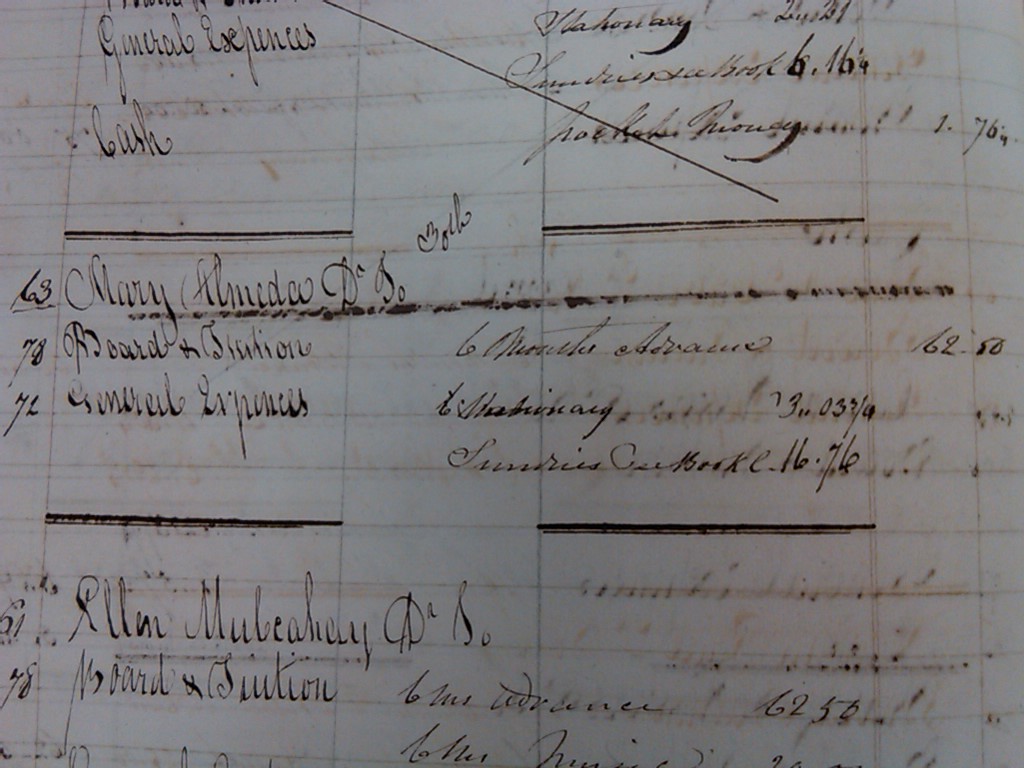 General Expences Stationary
Sundries see Book 6. 16¼
Cash pocket Money 1. 76
30th
63 Mary Almeda Dr To
78 Board & Tuition 6 Months Advance 62.50
72 General Expences Stationary 3.. 03¾
Sundries See Book 16.76
Ellen Mulcahay Dr To
78 Board & Tuition 6 Ms Advance 62 50
6 Ms